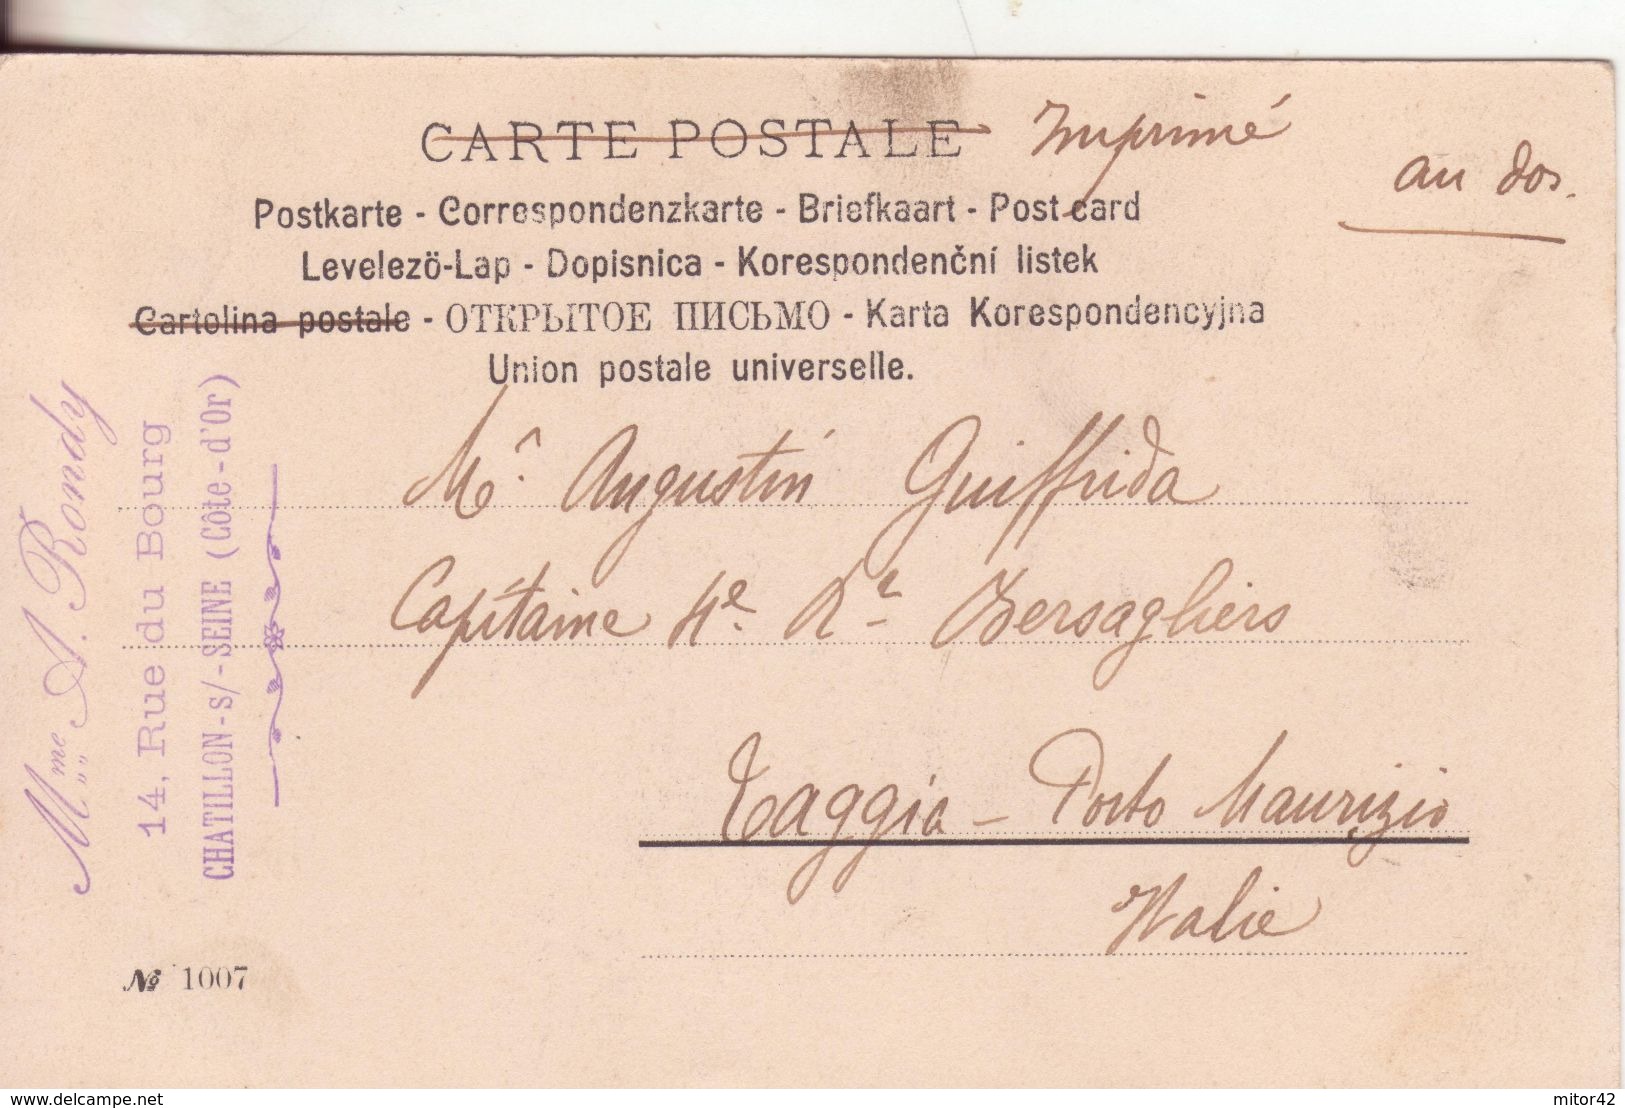 CARTE POSTALE Imprimé
au dos.
Postkarte - Correspondenzkarte - Briefkaart - Post card
Levelezö-Lap - Dopisnica - Korespondenční listek
Cartolina postale - ОТКРЫТОЕ ПИСЬМО - Karta Korespondencyjna
Union postale universelle.
Mme A. Rondy
14, Rue du Bourg
CHATILLON-s/-SEINE (Côte-d'Or)
Mr. Augustin Guiffrida
Capitaine 4e. Rt Bersagliers
Taggia - Porto Maurizio
Italie
№ 1007
delcampe.net
mitor42